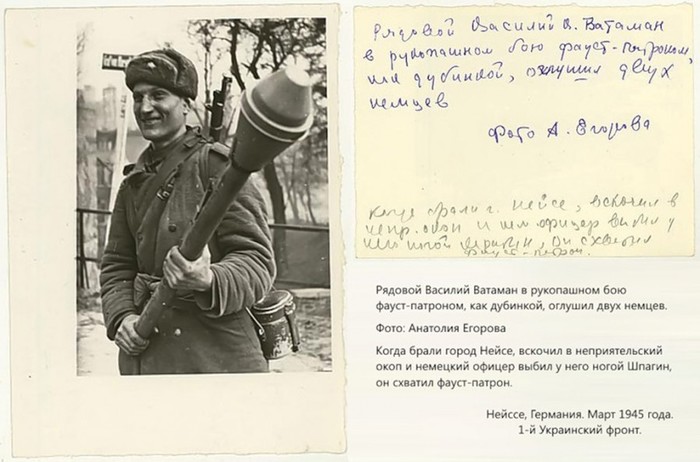 Рядовой Василий В. Ватаман
в рукопашном бою фауст-патроном,
как дубинкой, оглушил двух
немцев
Фото А. Егорова
когда брали г. Нейсе, вскочил в
непр. окоп и нем офицер выбил у
него ногой, он схватил
фауст-патрон.
Рядовой Василий Ватаман в рукопашном бою
фауст-патроном, как дубинкой, оглушил двух немцев.
Фото: Анатолия Егорова
Когда брали город Нейсе, вскочил в неприятельский
окоп и немецкий офицер выбил у него ногой Шпагин,
он схватил фауст-патрон.
Нейссе, Германия. Март 1945 года.
1-й Украинский фронт.